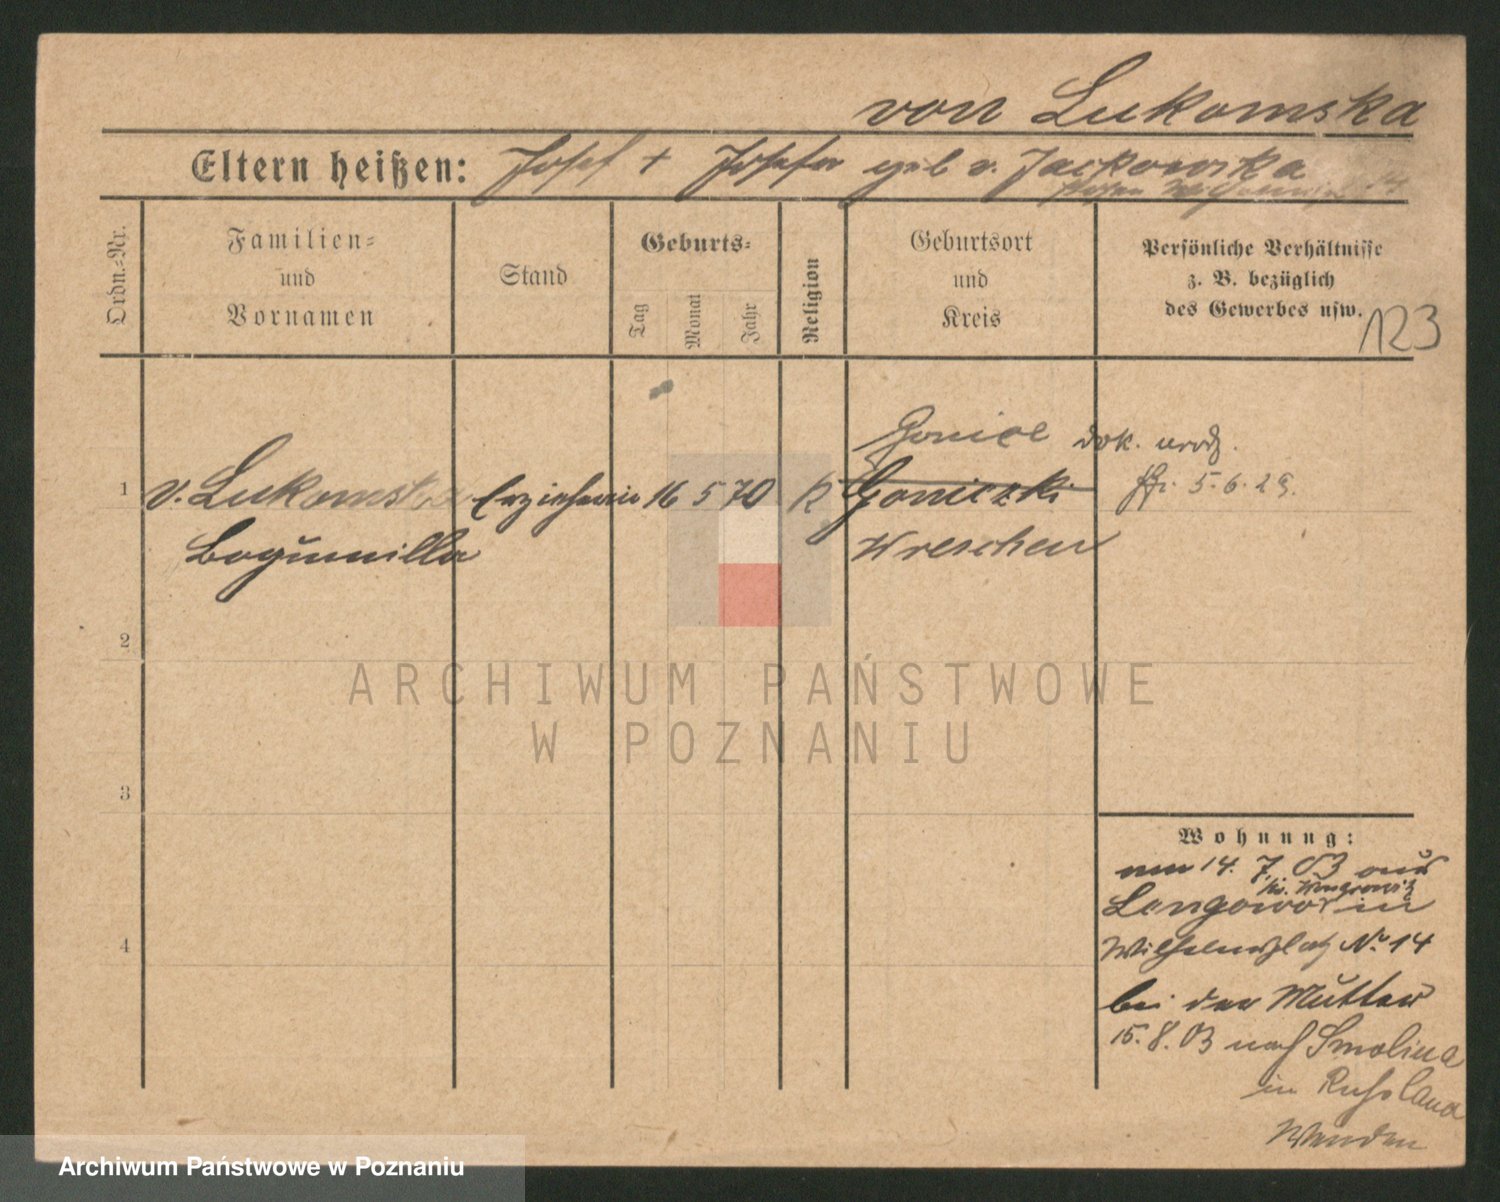 von Lukomska
Eltern heißen: Josef + Josefa geb v. Jackowska
Ordn.-Nr.
Familien-
und
Vornamen
Stand
Geburts-
Tag
Monat
Jahr
Religion
Geburtsort
und
Kreis
Persönliche Verhältnisse
z. B. bezüglich
des Gewerbes usw.
123
Gonice dok. urodz.
5.6.29.
1 v. Lukomska Erzieherin 16 5 70 K Goniczki
Bogumilla Wreschen
2
3
4
Wohnung:
am 14. 7. 03 aus
Kr. Wongrowitz
Lengowo in
Wilhelmsplatz No 14
bei der Mutter
15.8.03 nach Smolina
in Russland
Wenden
ARCHIWUM PAŃSTWOWE
W POZNANIU
Archiwum Państwowe w Poznaniu